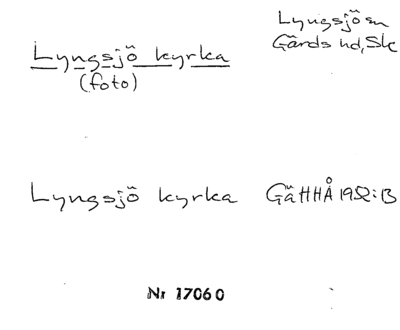 Lyngsjö sn
Gärds hd, Sk
Lyngsjö kyrka
(foto)
Lyngsjö kyrka GäHHÅ 1952:B
Nr 17060